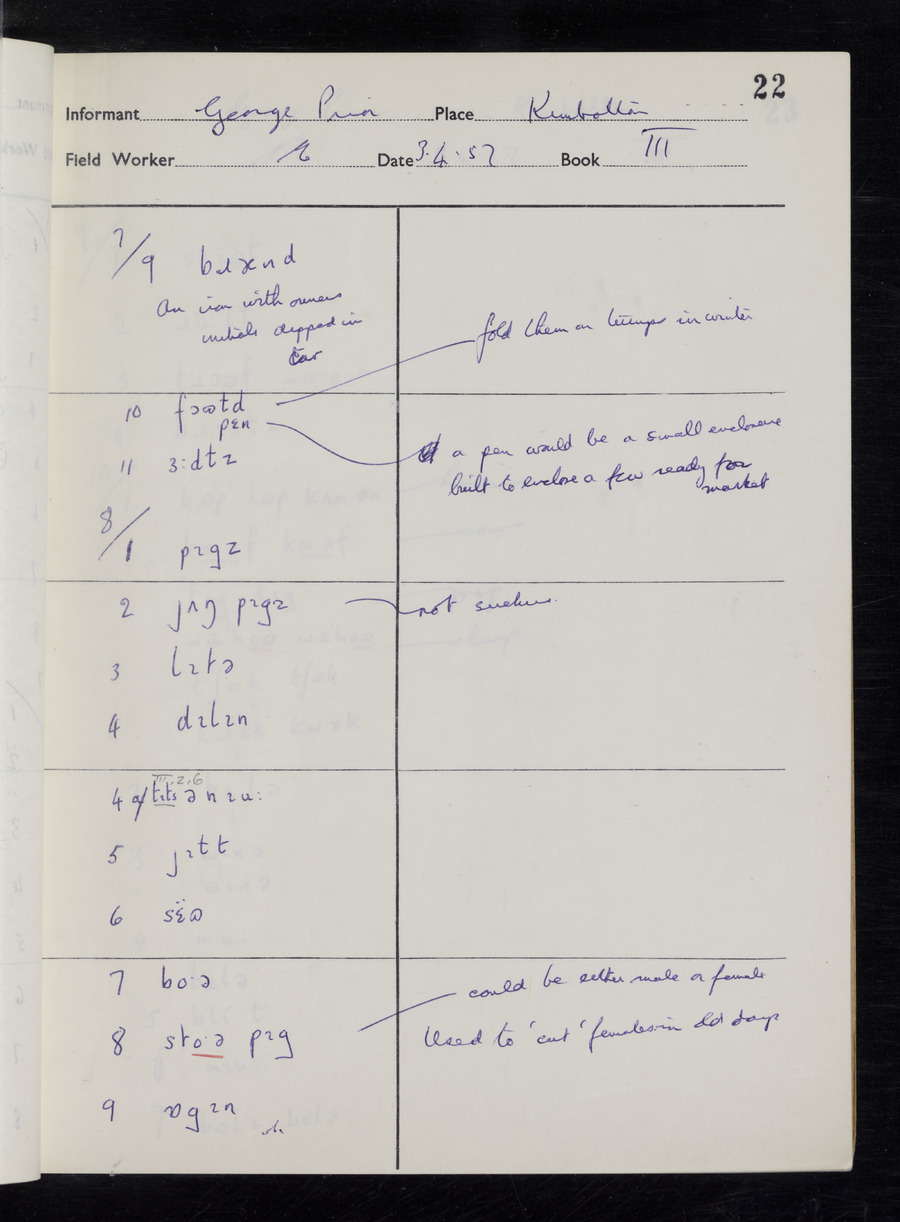 22
Informant George Prior Place Kimbolton
Field Worker Date 3.4.57 Book III
7/9 bɹænd
An iron with owners
initials dipped in
tar
fold them on turnips in winter
10 fɔʊɫd
pɛn
a pen would be a small enclosure
built to enclose a few ready for
market
11 ɜ:dɪz
8/1 pɪgz
2 jʌŋ pɪgz not suckers.
3 lɪtə
4 dɪlɪn
III.2.6
4 a/ tɪts ənɪu:
5 jɪɫt
6 sɛ̈ʊ
7 bo·ə
could be either male or female
8 sto·ə pɪg
Used to 'cut' females in old days
9 ɒgɪn